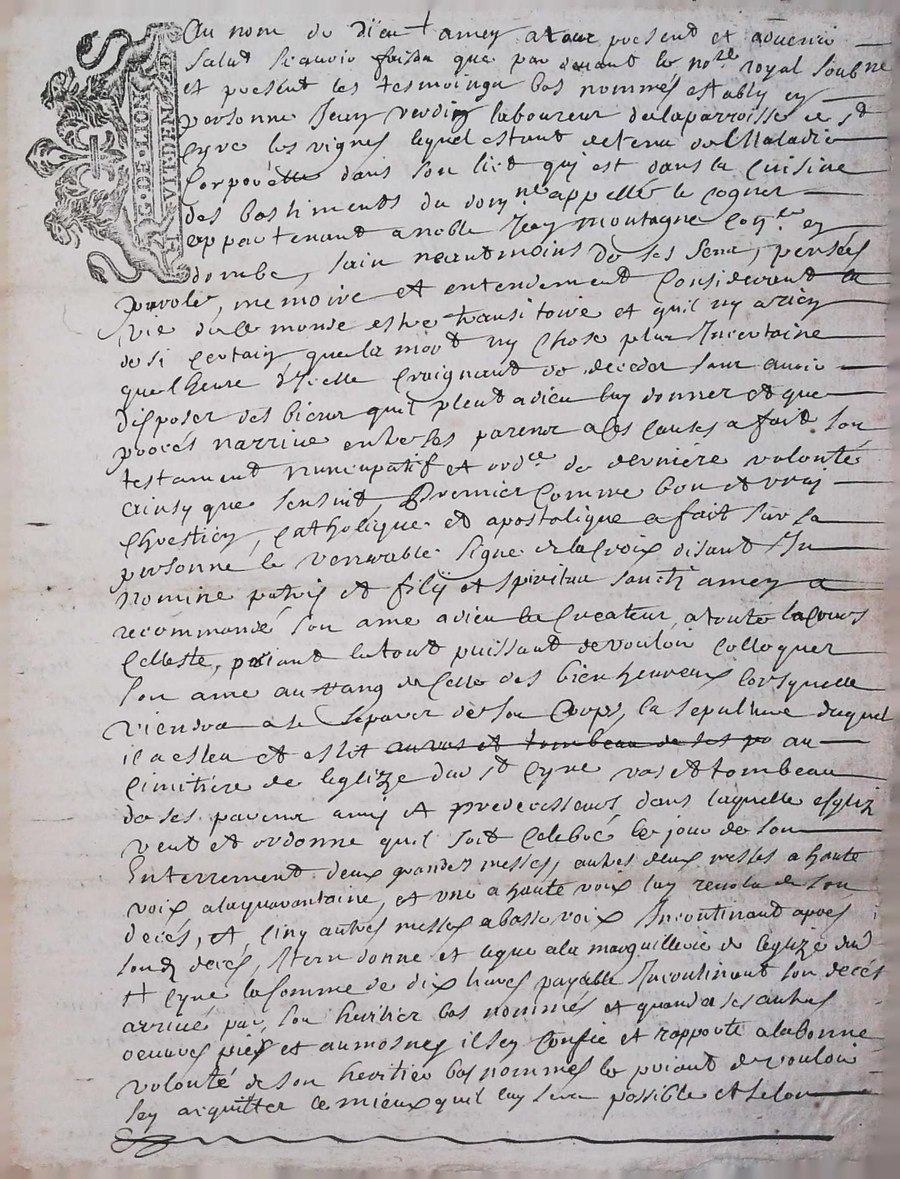 G. DE. LION
HVIT. DEN
Au nom de dieu + amen a tous present et advenir
Salut scavoir faisons que par devant le no.re royal soub.ne
et present les tesmoings bas nommés estably en
personne Jean verdin laboureur de la parroisse de s.t
Cyre les vignes lequel estant detenu de Maladie
Corporelle dans son lict qui est dans la Cuisine
des bastiments du dom.ne appellé le cogner
appartenant a noble Jean Montagne con.er en
dombe, sain neautmoins de ses sens, pensées
parole, memoire et entendement Considerant la
vie de ce monde estre transitoire et quil ny a rien
de si certain que la mort ny chose plus Incertaine
que lheure dIcelle Craignant de deceder sans avoir
disposer des biens quil pleut a dieu luy donner et que
procés narrive entre les parens a ses causes a fait son
testament nuncupatif et ord.ce de derniere volonté
ainsy que sensuit, Premier Comme bon et vray
chrestien, catholique et apostolique a fait sur sa
personne le venerable signe de la Croix disant In
nomine patris et filij et spiritus sancti amen a
recommandé son ame a dieu le Createur, a toute la Cour
Celleste, priant le tout puissant de vouloir Colloquer
son ame au rang de Celle des bien heureux lorsquelle
viendra a se separer de son Corps, la sepulture duquel
il a esleu et eslit au vas et tombeau de ses po au
Cimitière de leglize dud s.t Cyre vas et tombeau
de ses parens amis et predecesseurs dans laquelle esgliz
veut et ordonne quil soit Celebré le jour de son
Enterrement deux grandes messes, autres deux messes a haute
voix a la quarantaine, et une a haute voix luy revolu de son
decés, et Cinq autres messes a basse voix Incontinant apres
sond decés, Item donne et legue a la marguillerie de leglize dud
s.t Cyre la somme de dix livres payable Incontinant son decés
arrivé par son heritier bas nommés et quand a ses autres
oeuvres pies et aumosnes il sen Confie et rapporte a la bonne
volonté de son heritier bas nommés le priant de vouloir
sen aquitter le mieux quil luy sera possible et selon